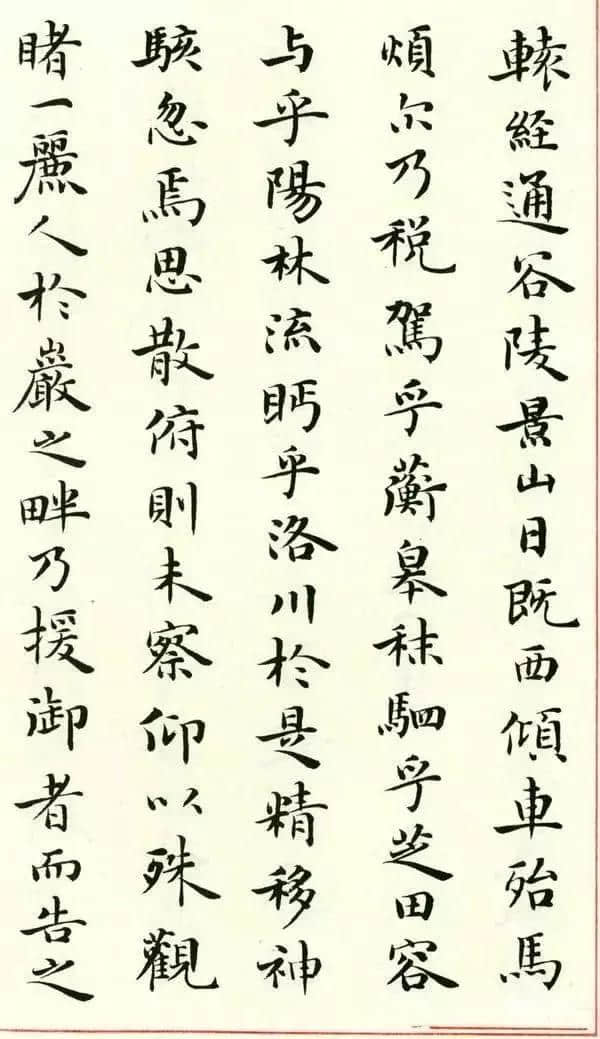 轅經通谷陵景山日既西傾車殆馬
煩尔乃税駕乎蘅皋秣駟乎芝田容
与乎陽林流眄乎洛川於是精移神
駭忽焉思散俯則未察仰以殊觀
睹一麗人於巖之畔乃援御者而告之